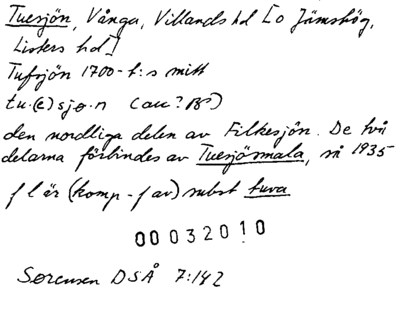 Tuesjön, Vånga, Villands hd [o Jämshög,
Listers hd]
Tufsjön 1700-t:s mitt
tu.(e)sjø.n (au? BS)
den nordliga delen av Filkesjön. De två
delarna förbindes av Tuesjösmala, så 1935
f l är (komp-f av) subst tuva
00032010
Sørensen DSÅ 7:142